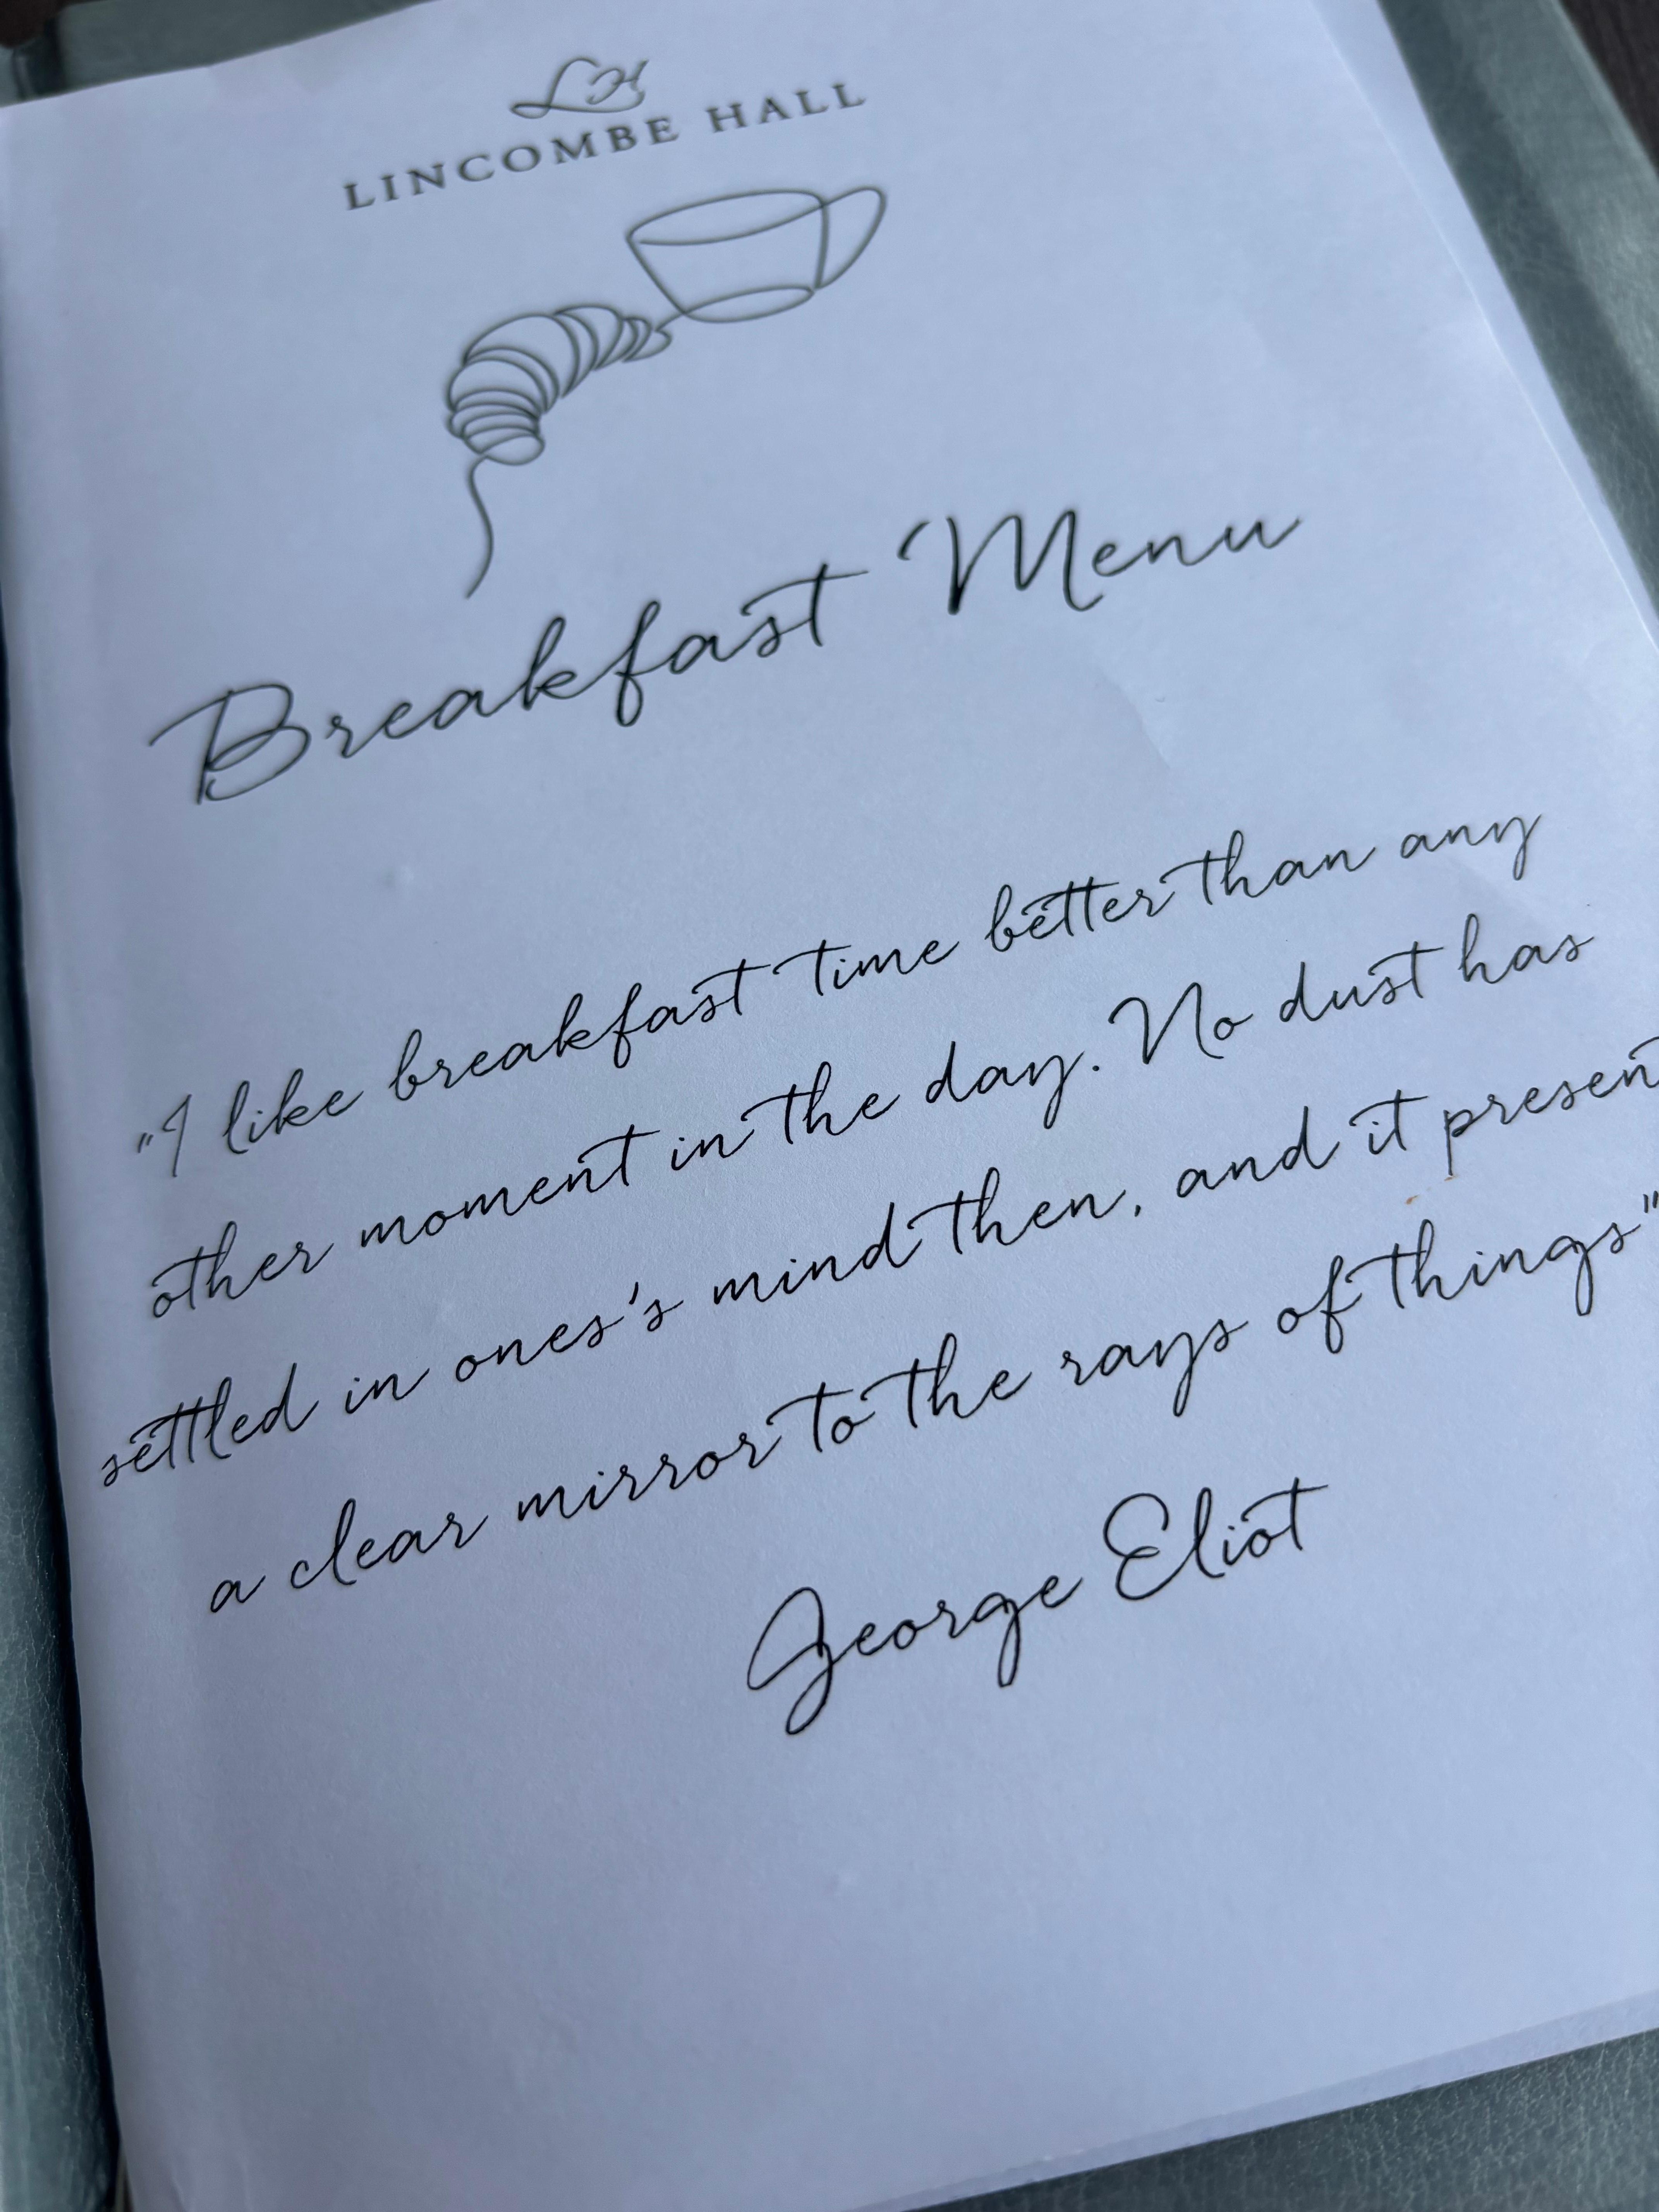 LH
LINCOMBE HALL
Breakfast Menu
"I like breakfast time better than any
other moment in the day. No dust has
settled in ones's mind then, and it present
a clear mirror to the rays of things"
George Eliot